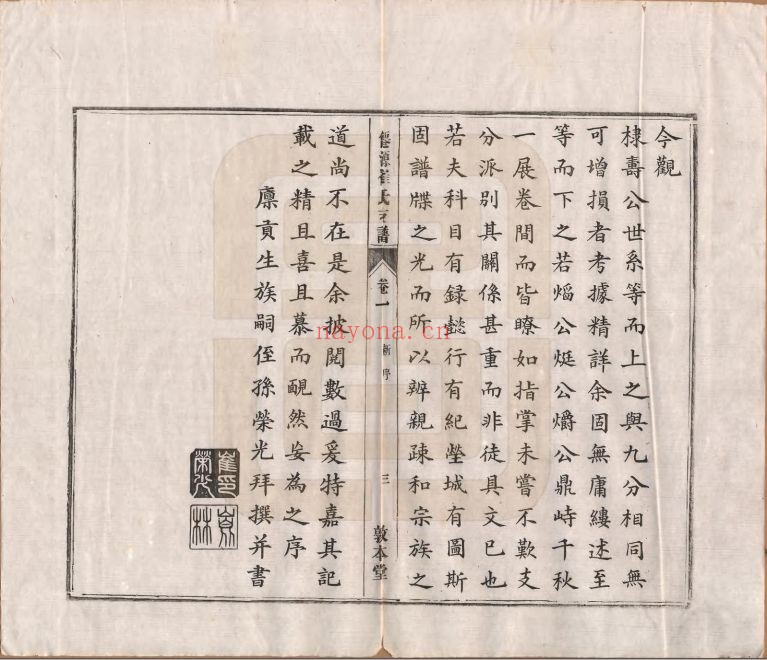 今觀
棣壽公世系等而上之與九分相同無
可增損者考據精詳余固無庸縷述至
等而下之若熖公烶公爝公鼎峙千秋
一展卷間而皆瞭如指掌未嘗不歎支
分派別其關係甚重而非徒具文已也
若夫科目有録懿行有紀塋城有圖斯
固譜牒之光而所以辨親疎和宗族之
崔氏 譜 卷一 新序 三 敦本堂
道尚不在是余披閱數過爰特嘉其記
載之精且喜且慕而靦然妄為之序
廪貢生族嗣侄孫榮光拜撰并書
崔印榮光
林
nayona.cn